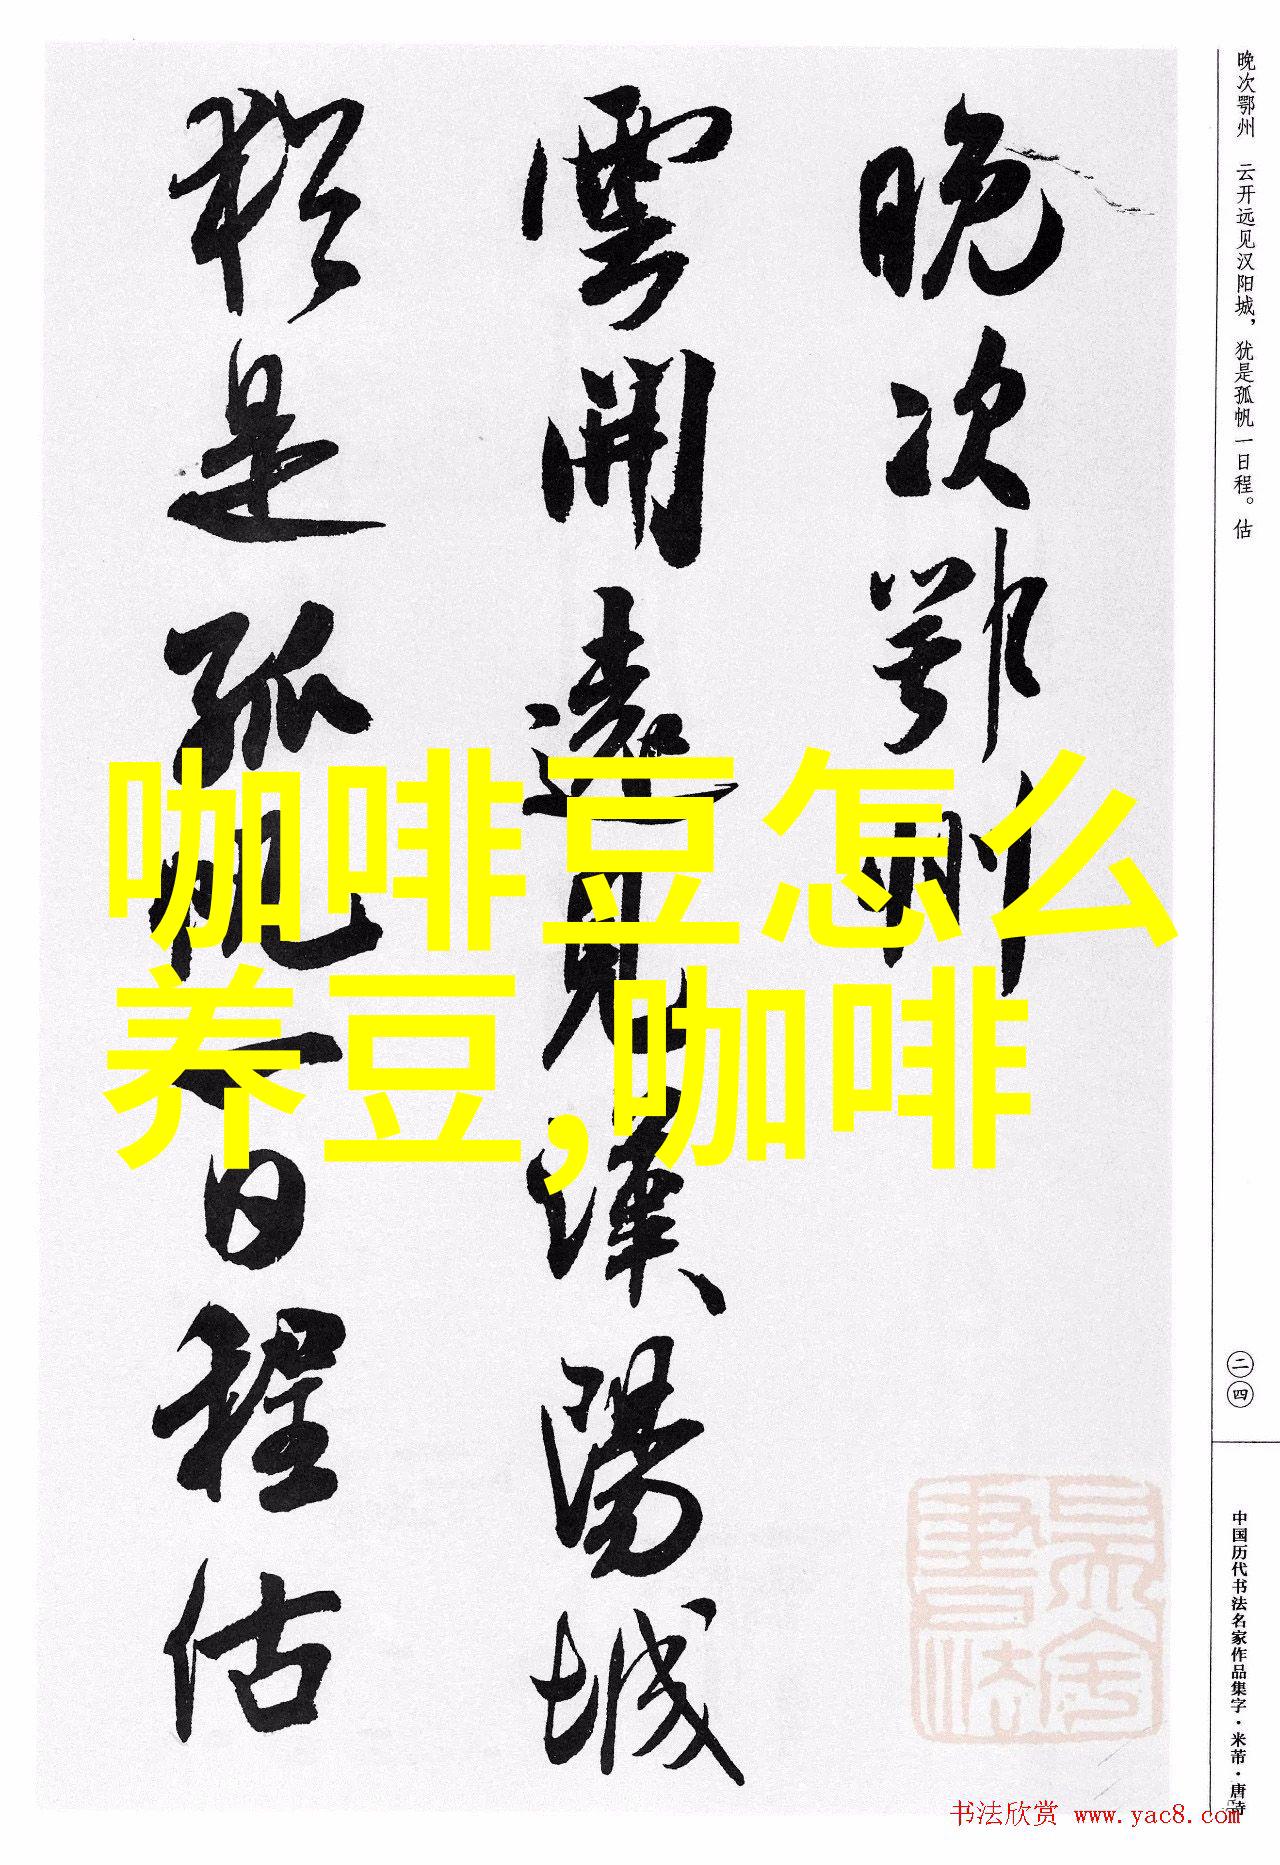 晚次鄂州　云开远见汉阳城，犹是孤帆一日程。估
二四
中国历代书法名家作品集字·米芾·唐诗
晚次鄂州
雲開遠見漢陽城
猶是孤帆一日程估
咖啡豆怎么
养豆,咖啡
书法欣赏 www.yac8.com